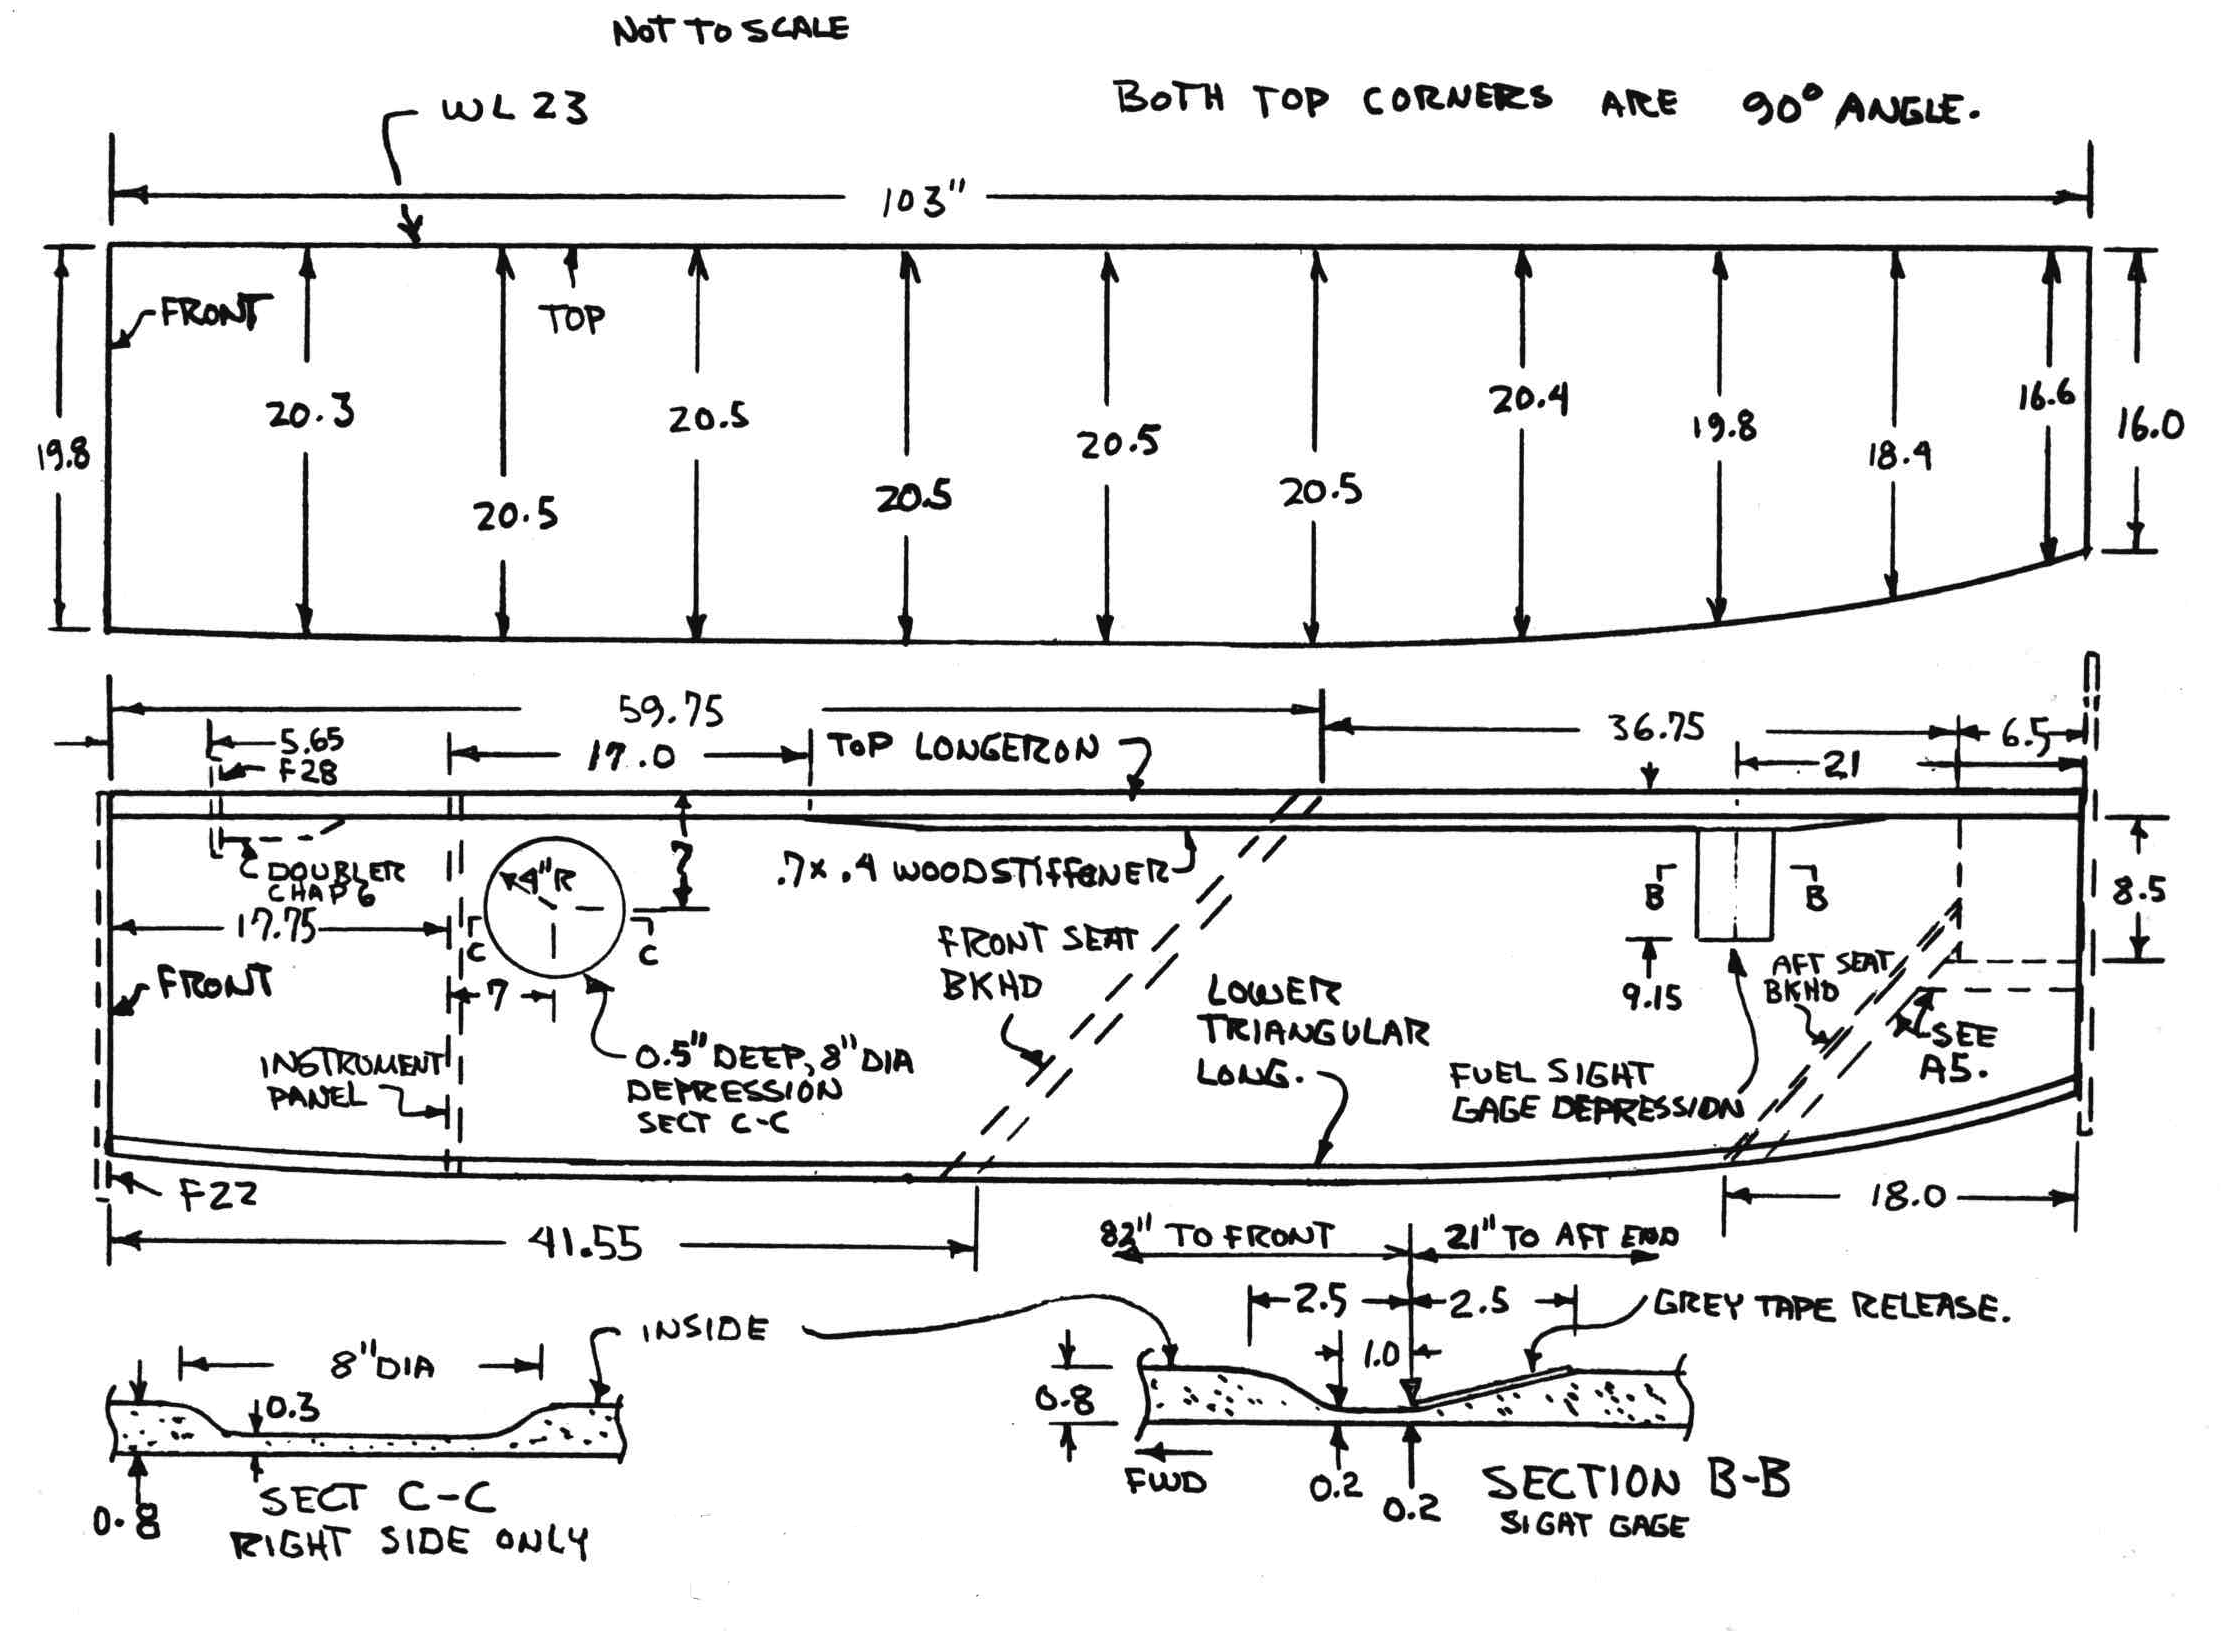 NOT TO SCALE
WL 23
BOTH TOP CORNERS ARE 90° ANGLE.
103"
FRONT
TOP
19.8
20.3
20.5
20.5
20.5
20.5
20.5
20.4
19.8
18.4
16.6
16.0
59.75
36.75
6.5
5.65
F28
17.0
TOP LONGERON
21
DOUBLER
CHAP 6
4"R
7
.7x .4 WOOD STIFFENER
B
B
8.5
17.75
C
C
FRONT SEAT
BKHD
FRONT
7
LOWER
TRIANGULAR
LONG.
9.15
AFT SEAT
BKHD
SEE
A5.
INSTRUMENT
PANEL
0.5" DEEP, 8" DIA
DEPRESSION
SECT C-C
FUEL SIGHT
GAGE DEPRESSION
F22
18.0
41.55
82" TO FRONT
21" TO AFT END
INSIDE
2.5
2.5
GREY TAPE RELEASE.
8" DIA
1.0
0.3
0.8
0.8
FWD
0.2
0.2
SECT C-C
RIGHT SIDE ONLY
SECTION B-B
SIGAT GAGE